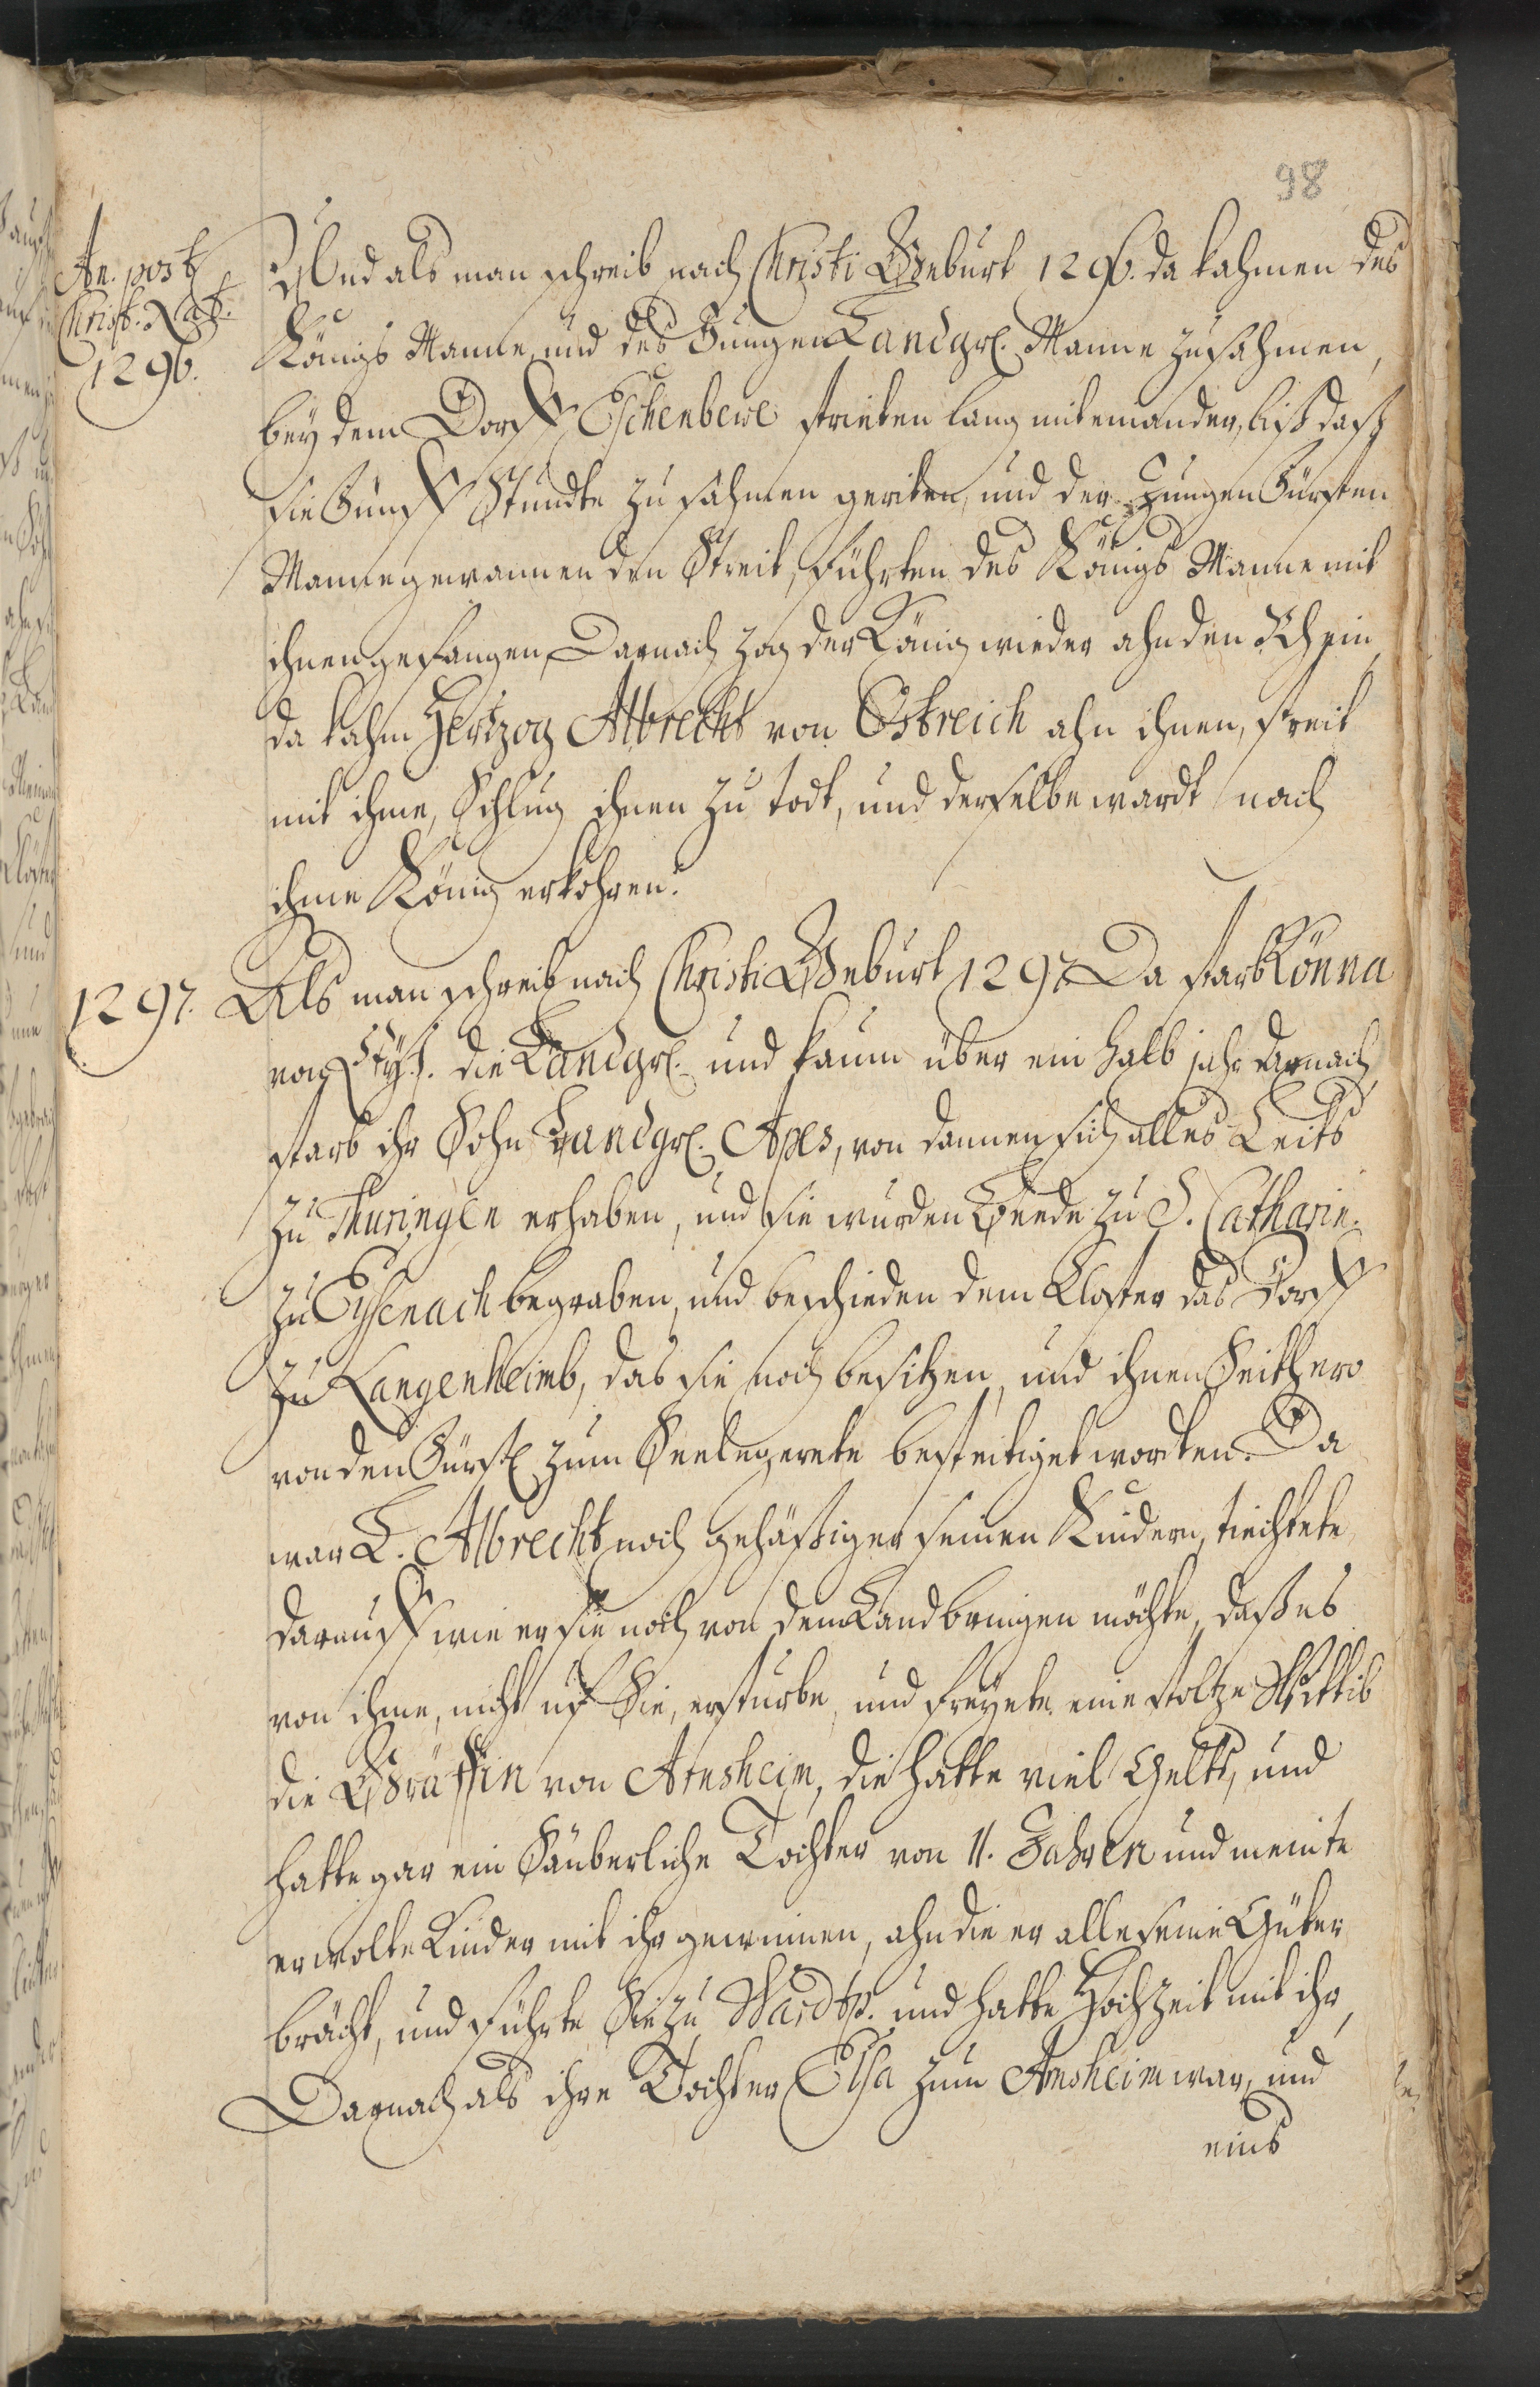 98
An. post
Christ. Nat.
1296.
Und als man schreib nach Christi Geburt 1296. da kahmen des
Königs Manne und des Jungen Landgr. Manne zusahmen,
bey dem Dorff Eschenbere strieten lang miteinander, biß daß
sie Fünff Stundte zusahmen geriten, und der Jungen Fürsten
Manne gewannen den Streit, führten des Königs Manne mit
ihnen gefangen, Darnach zog der König wieder ahn den Rhein
da kahm Hertzog Albrecht von Östreich ahn ihnen, streit
mit ihme, Schlug ihnen zu todt, und derselbe wardt nach
ihme König erkohren.
1297. Als man schreib nach Christi Geburt 1297 Da starb Könna
von die Landgr. und kaum über ein halb jahr darnach
starb ihr Sohn Landgr. Apes, von dannen sich alles Leits
zu Thuringen erhaben, und sie wurden Beede zu S. Catharin.
zu Eysenach begraben, und beschieden dem Kloster das Dorff
zu Langenheimb, das sie noch besitzen, und ihnen Seithero
von den Fürst. zum Seelegerete bestetiget worden. Da
war L. Albrecht noch gehässiger seinen Kindern, tichtete
darauff wie er sie noch von dem Land bringen möchte, daß es
von ihme, nicht uf Sie, ersturbe, und freyete eine stoltze Wittib
die Gräffin von Arnsheim, die hatte viel Gelts, und
hatte gar ein Säuberliche Tochter von 11. Jahren und meinte
er wolte Kinder mit ihr gewinnen, ahn die er alle seine Güter
brächt, und führte Sie zu Wardtp. und hatte Hochzeit mit ihr,
Darnach als ihre Tochter Elsa zum Arnsheim war, und
eins